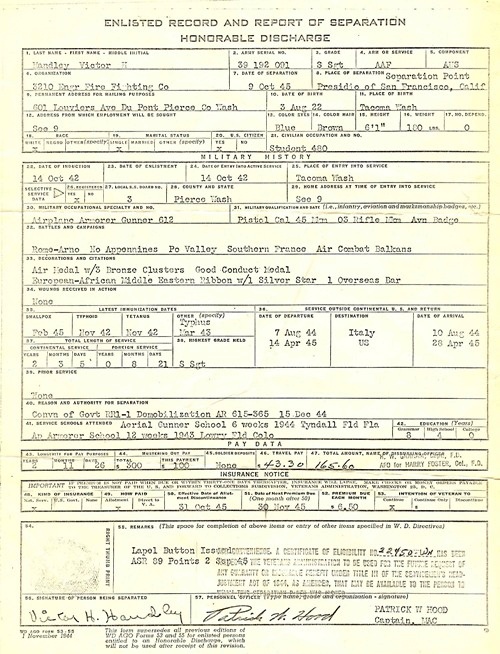 ENLISTED RECORD AND REPORT OF SEPARATION
HONORABLE DISCHARGE
1. LAST NAME - FIRST NAME - MIDDLE INITIAL 2. ARMY SERIAL NO. 3. GRADE 4. ARM OR SERVICE 5. COMPONENT
Handley Victor H 39 192 091 S Sgt AAF AUS
6. ORGANIZATION 7. DATE OF SEPARATION 8. PLACE OF SEPARATION Separation Point
3210 Engr Fire Fighting Co 9 Oct 45 Presidio of San Francisco, Calif
9. PERMANENT ADDRESS FOR MAILING PURPOSES 10. DATE OF BIRTH 11. PLACE OF BIRTH
601 Louviers Ave Du Pont Pierce Co Wash 3 Aug 22 Tacoma Wash
12. ADDRESS FROM WHICH EMPLOYMENT WILL BE SOUGHT 13. COLOR EYES 14. COLOR HAIR 15. HEIGHT 16. WEIGHT 17. NO. DEPEND.
See 9 Blue Brown 6'1" 180 LBS. 0
18. RACE 19. MARITAL STATUS 20. U.S. CITIZEN 21. CIVILIAN OCCUPATION AND NO.
WHITE NEGRO OTHER (specify) SINGLE MARRIED OTHER (specify) YES NO
x x x Student 480
MILITARY HISTORY
22. DATE OF INDUCTION 23. DATE OF ENLISTMENT 24. DATE OF ENTRY INTO ACTIVE SERVICE 25. PLACE OF ENTRY INTO SERVICE
14 Oct 42 14 Oct 42 Tacoma Wash
SELECTIVE SERVICE DATA 26. REGISTERED YES NO 27. LOCAL S.S. BOARD NO. 28. COUNTY AND STATE 29. HOME ADDRESS AT TIME OF ENTRY INTO SERVICE
x 3 Pierce Wash See 9
30. MILITARY OCCUPATIONAL SPECIALTY AND NO. 31. MILITARY QUALIFICATION AND DATE (i.e., infantry, aviation and marksmanship badges, etc.)
Airplane Armorer Gunner 612 Pistol Cal 45 Mkm 03 Rifle Mkm Avn Badge
32. BATTLES AND CAMPAIGNS
Rome-Arno No Appennines Po Valley Southern France Air Combat Balkans
33. DECORATIONS AND CITATIONS
Air Medal w/3 Bronze Clusters Good Conduct Medal
European-African Middle Eastern Ribbon w/1 Silver Star 1 Overseas Bar
34. WOUNDS RECEIVED IN ACTION
None
35. LATEST IMMUNIZATION DATES 36. SERVICE OUTSIDE CONTINENTAL U.S. AND RETURN
SMALLPOX TYPHOID TETANUS OTHER (specify) DATE OF DEPARTURE DESTINATION DATE OF ARRIVAL
Typhus
Feb 45 Nov 42 Nov 42 Mar 43 7 Aug 44 Italy 10 Aug 44
37. TOTAL LENGTH OF SERVICE 38. HIGHEST GRADE HELD 14 Apr 45 US 28 Apr 45
CONTINENTAL SERVICE FOREIGN SERVICE
YEARS MONTHS DAYS YEARS MONTHS DAYS
2 3 5 0 8 21 S Sgt
39. PRIOR SERVICE
None
40. REASON AND AUTHORITY FOR SEPARATION
Convn of Govt RR1-1 Demobilization AR 615-365 15 Dec 44
41. SERVICE SCHOOLS ATTENDED Aerial Gunner School 6 weeks 1944 Tyndall Fld Fla 42. EDUCATION (Years)
Grammar High School College
Ap Armorer School 12 weeks 1943 Lowry Fld Colo 8 4 0
PAY DATA
43. LONGEVITY FOR PAY PURPOSES 44. MUSTERING OUT PAY 45. SOLDIER DEPOSITS 46. TRAVEL PAY 47. TOTAL AMOUNT, NAME OF DISBURSING OFFICER
YEARS MONTHS DAYS TOTAL THIS PAYMENT
2 11 26 $ 300 $ 100 None $ 43.30 165.60 AIO for HARRY FOSTER, Col., F.D.
INSURANCE NOTICE
48. KIND OF INSURANCE 49. HOW PAID 50. Effective Date of Allotment Discontinuance 51. Date of Next Premium Due (One month after 50) 52. PREMIUM DUE EACH MONTH 53. INTENTION OF VETERAN TO
31 Oct 45 30 Nov 45 $ 6.50 x
54. 55. REMARKS (This space for completion of above items or entry of other items specified in W. D. Directives)
RIGHT THUMB PRINT
Lapel Button Issued
ASR 89 Points 2 Sep 45
56. SIGNATURE OF PERSON BEING SEPARATED 57. PERSONNEL OFFICER (Type name, grade and organization - signature)
Victor H. Handley Patrick W Hood PATRICK W HOOD
Captain, MAC
WD AGO FORM 53-55
1 November 1944
This form supersedes all previous editions of
WD AGO Forms 53 and 55 for enlisted persons
entitled to an Honorable Discharge, which
will not be used after receipt of this revision.